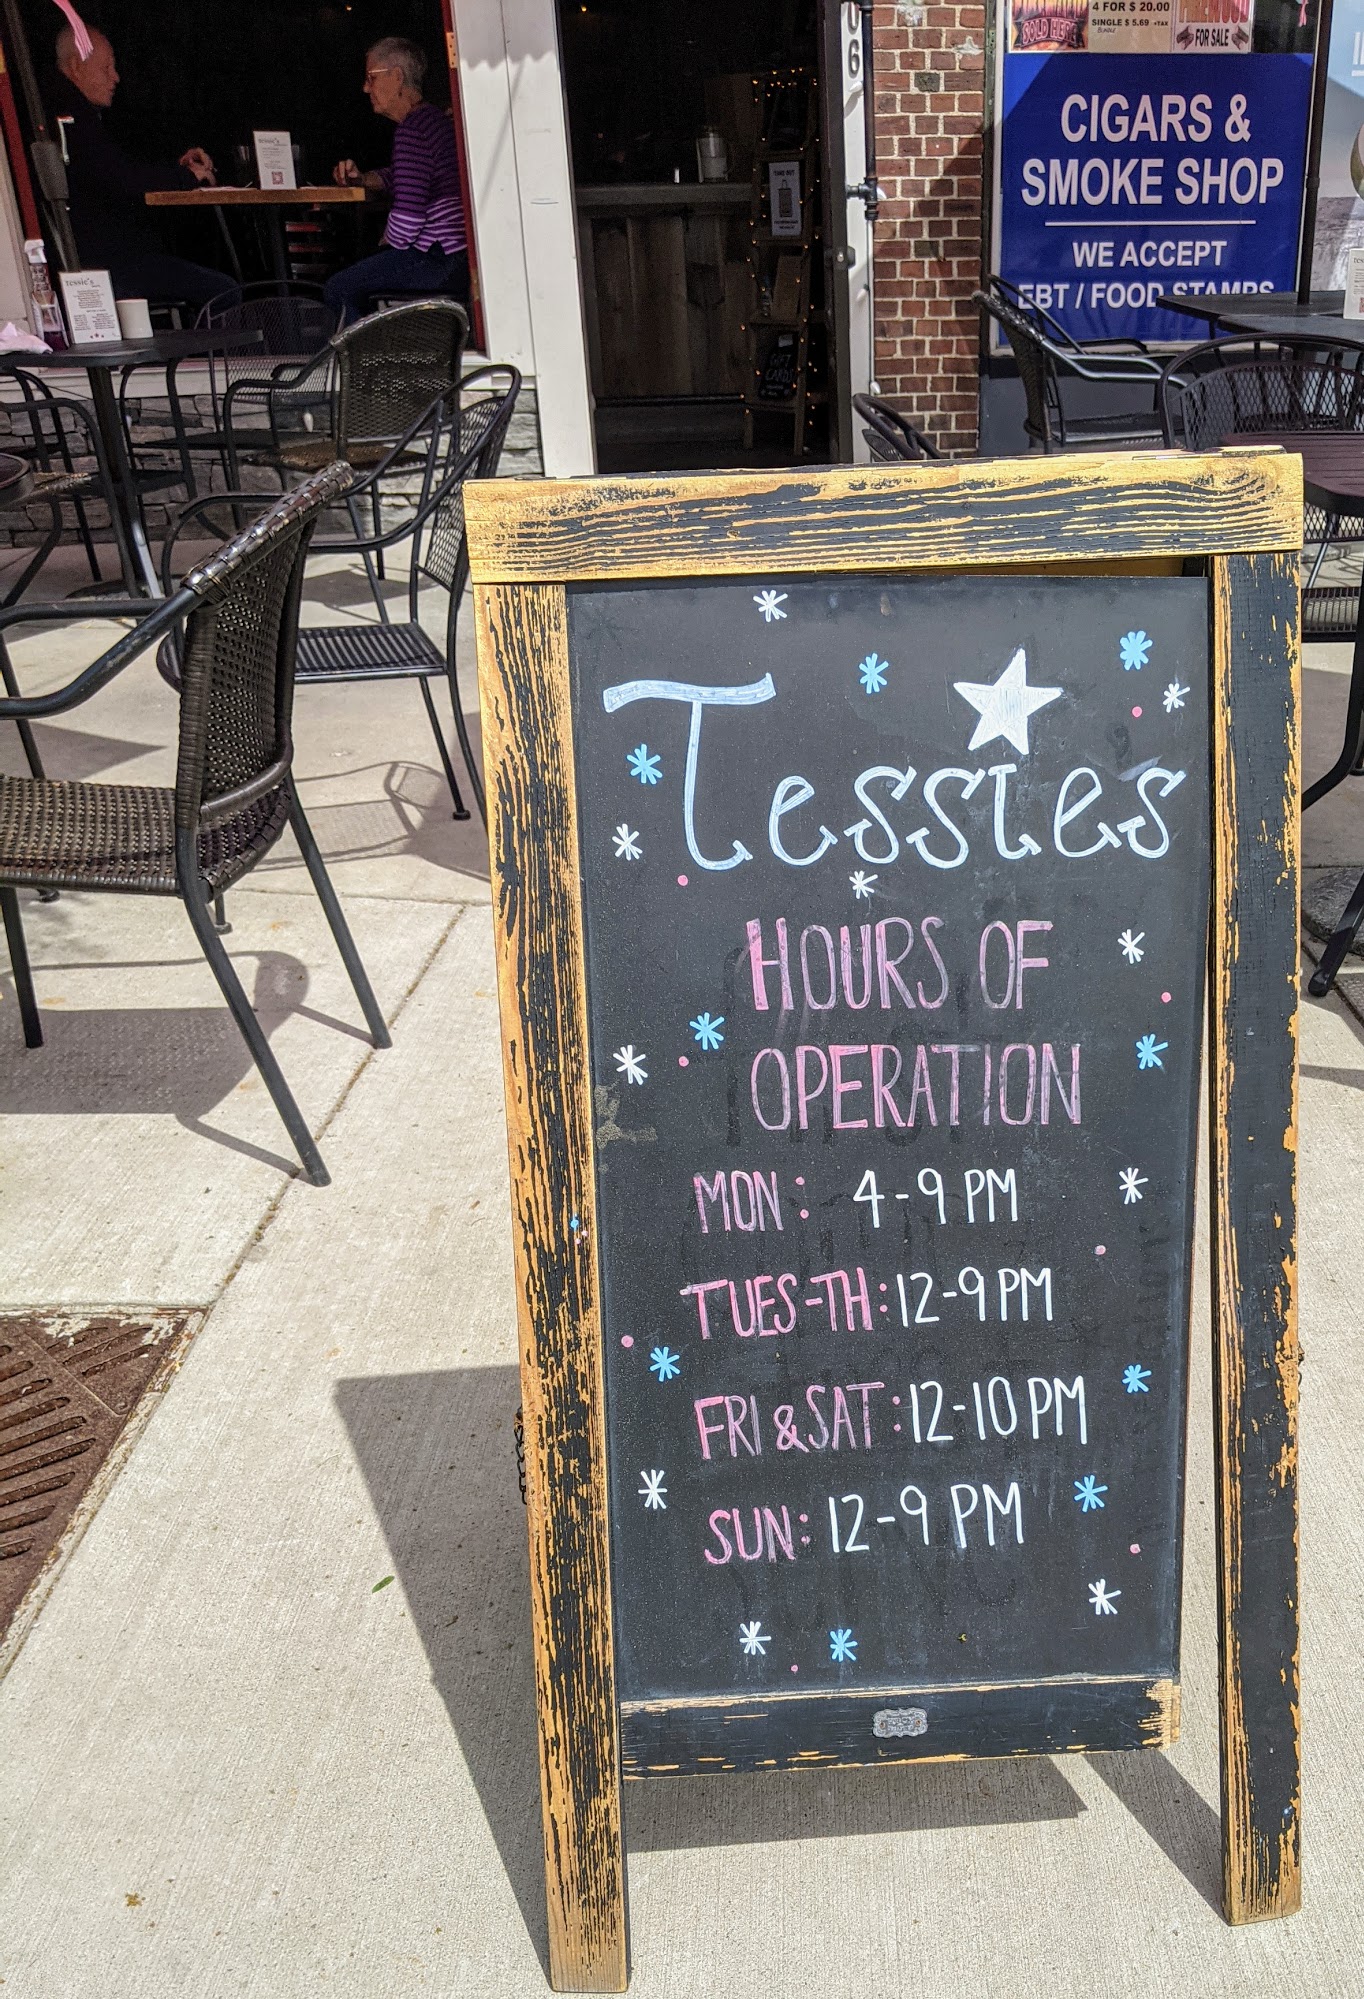 4 FOR $ 20.00
SINGLE $ 5.69 +TAX
SOLD HERE
FOR SALE
CIGARS &
SMOKE SHOP
WE ACCEPT
EBT / FOOD STAMPS
06
TAKE OUT
GIFT
CARDS
tessie's
Tessies
HOURS OF
OPERATION
MON: 4-9 PM
TUES-TH: 12-9 PM
FRI & SAT: 12-10 PM
SUN: 12-9 PM